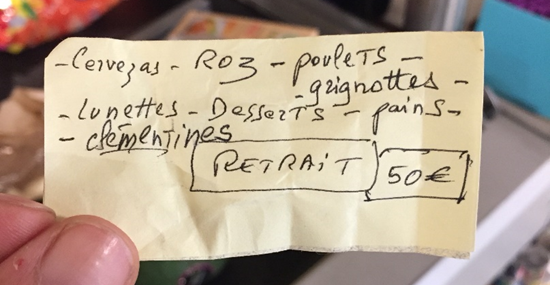 - Cervezas - ROZ - pouleTS -
- grignottes -
- Lunettes - DesserTS - pains -
- clémentines
RETRAiT 50€